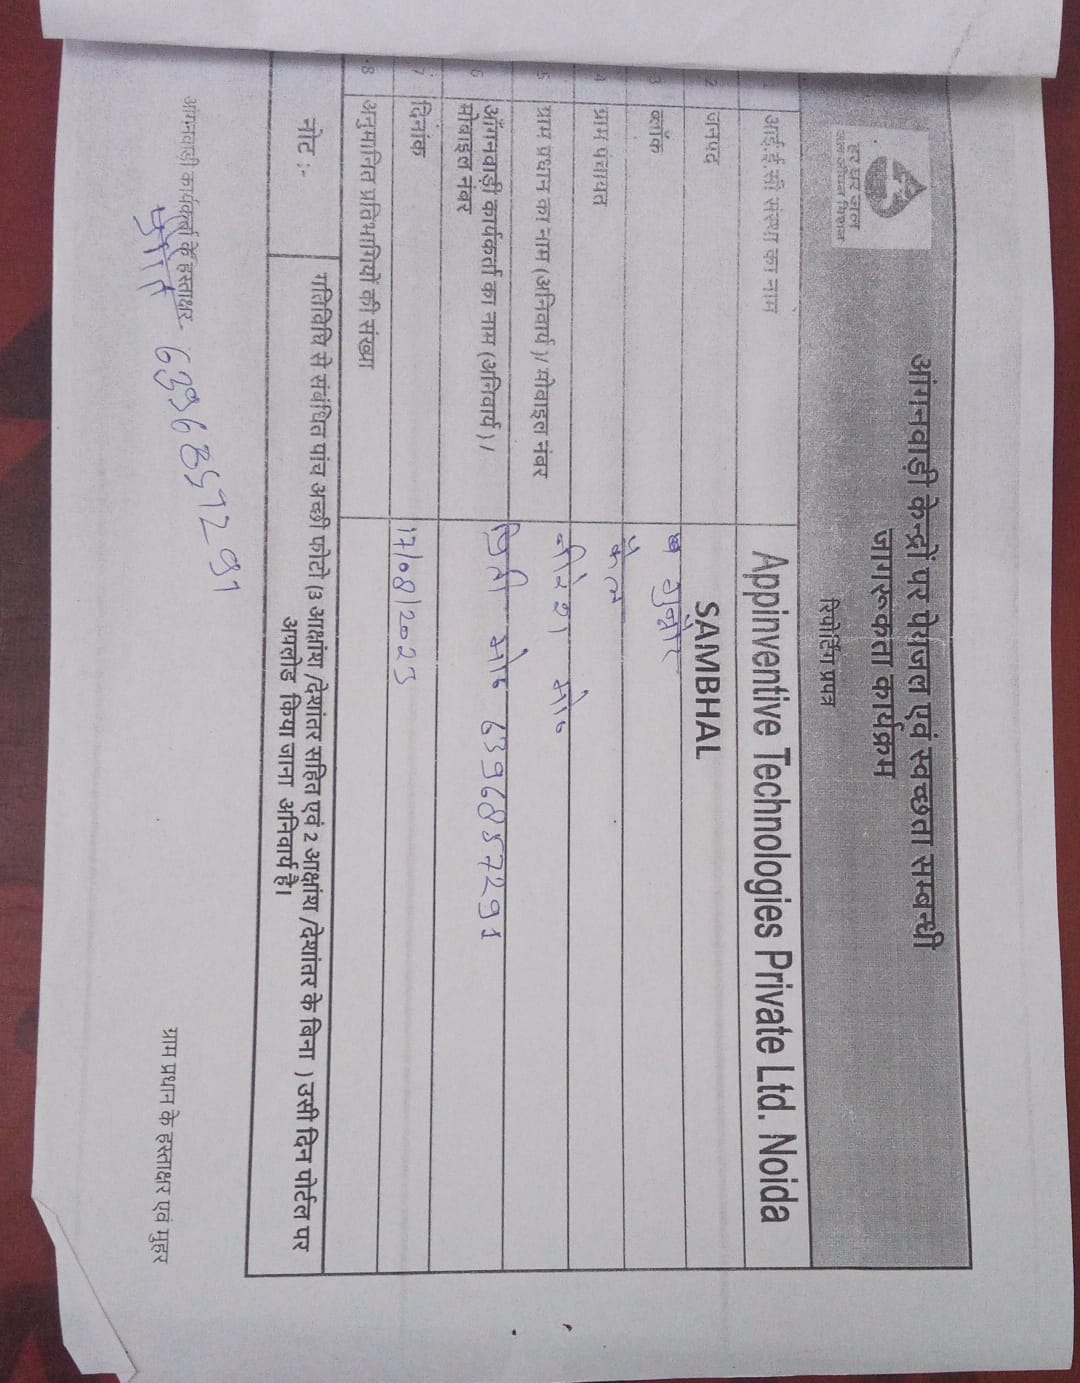 हर घर जल
जल जीवन मिशन
आंगनवाड़ी केन्द्रों पर पेयजल एवं स्वच्छता सम्बन्धी
जागरूकता कार्यक्रम
रिपोर्टिंग प्रपत्र
आई.ई.सी संस्था का नाम Appinventive Technologies Private Ltd. Noida
2 जनपद SAMBHAL
3 ब्लॉक गुन्नौर
4 ग्राम पंचायत
5 ग्राम प्रधान का नाम (अनिवार्य)/ मोबाइल नंबर मो०
6 आँगनवाड़ी कार्यकर्ता का नाम (अनिवार्य) /
मोबाइल नंबर मो० 6396857291
7 दिनांक 17/08/2023
8 अनुमानित प्रतिभागियों की संख्या
नोट :- गतिविधि से संबंधित पांच अच्छी फोटो (3 आक्षांश /देशांतर सहित एवं 2 आक्षांश /देशांतर के बिना ) उसी दिन पोर्टल पर
अपलोड किया जाना अनिवार्य है।
आंगनवाड़ी कार्यकर्ता के हस्ताक्षर- 6396857291
ग्राम प्रधान के हस्ताक्षर एवं मुहर